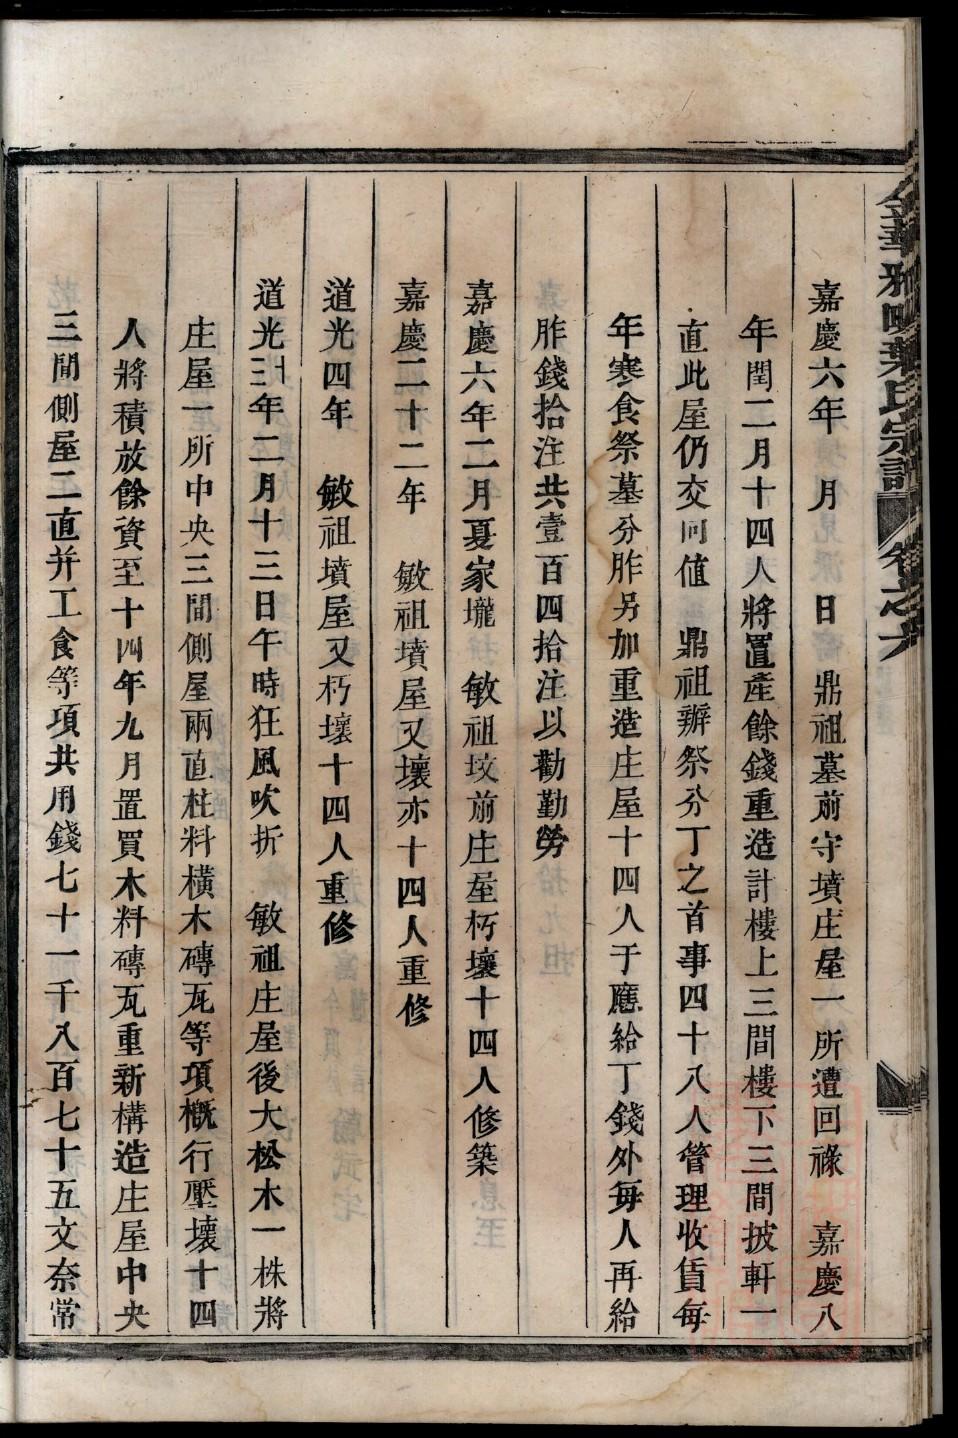 嘉慶六年　月　日　鼎祖墓前守墳庄屋一所遭回祿　嘉慶八
年閏二月十四人將置產餘錢重造計樓上三間樓下三間披軒一
直此屋仍交同值　鼎祖辦祭分丁之首事四十八人管理收賃每
年寒食祭墓分胙另加重造庄屋十四人于應給丁錢外每人再給
胙錢拾注共壹百四拾注以勸勤勞
嘉慶六年二月夏家壠　敏祖坟前庄屋朽壞十四人修築
嘉慶二十二年　敏祖墳屋又壞亦十四人重修
道光四年　敏祖墳屋又朽壞十四人重修
道光年二月十三日午時狂風吹折　敏祖庄屋後大松木一株將
庄屋一所中央三間側屋兩直柱料橫木磚瓦等項概行壓壞十四
人將積放餘資至十四年九月置買木料磚瓦重新構造庄屋中央
三間側屋二直并工食等項共用錢七十一千八百七十五文奈常
金華雅葉氏宗譜　卷之六